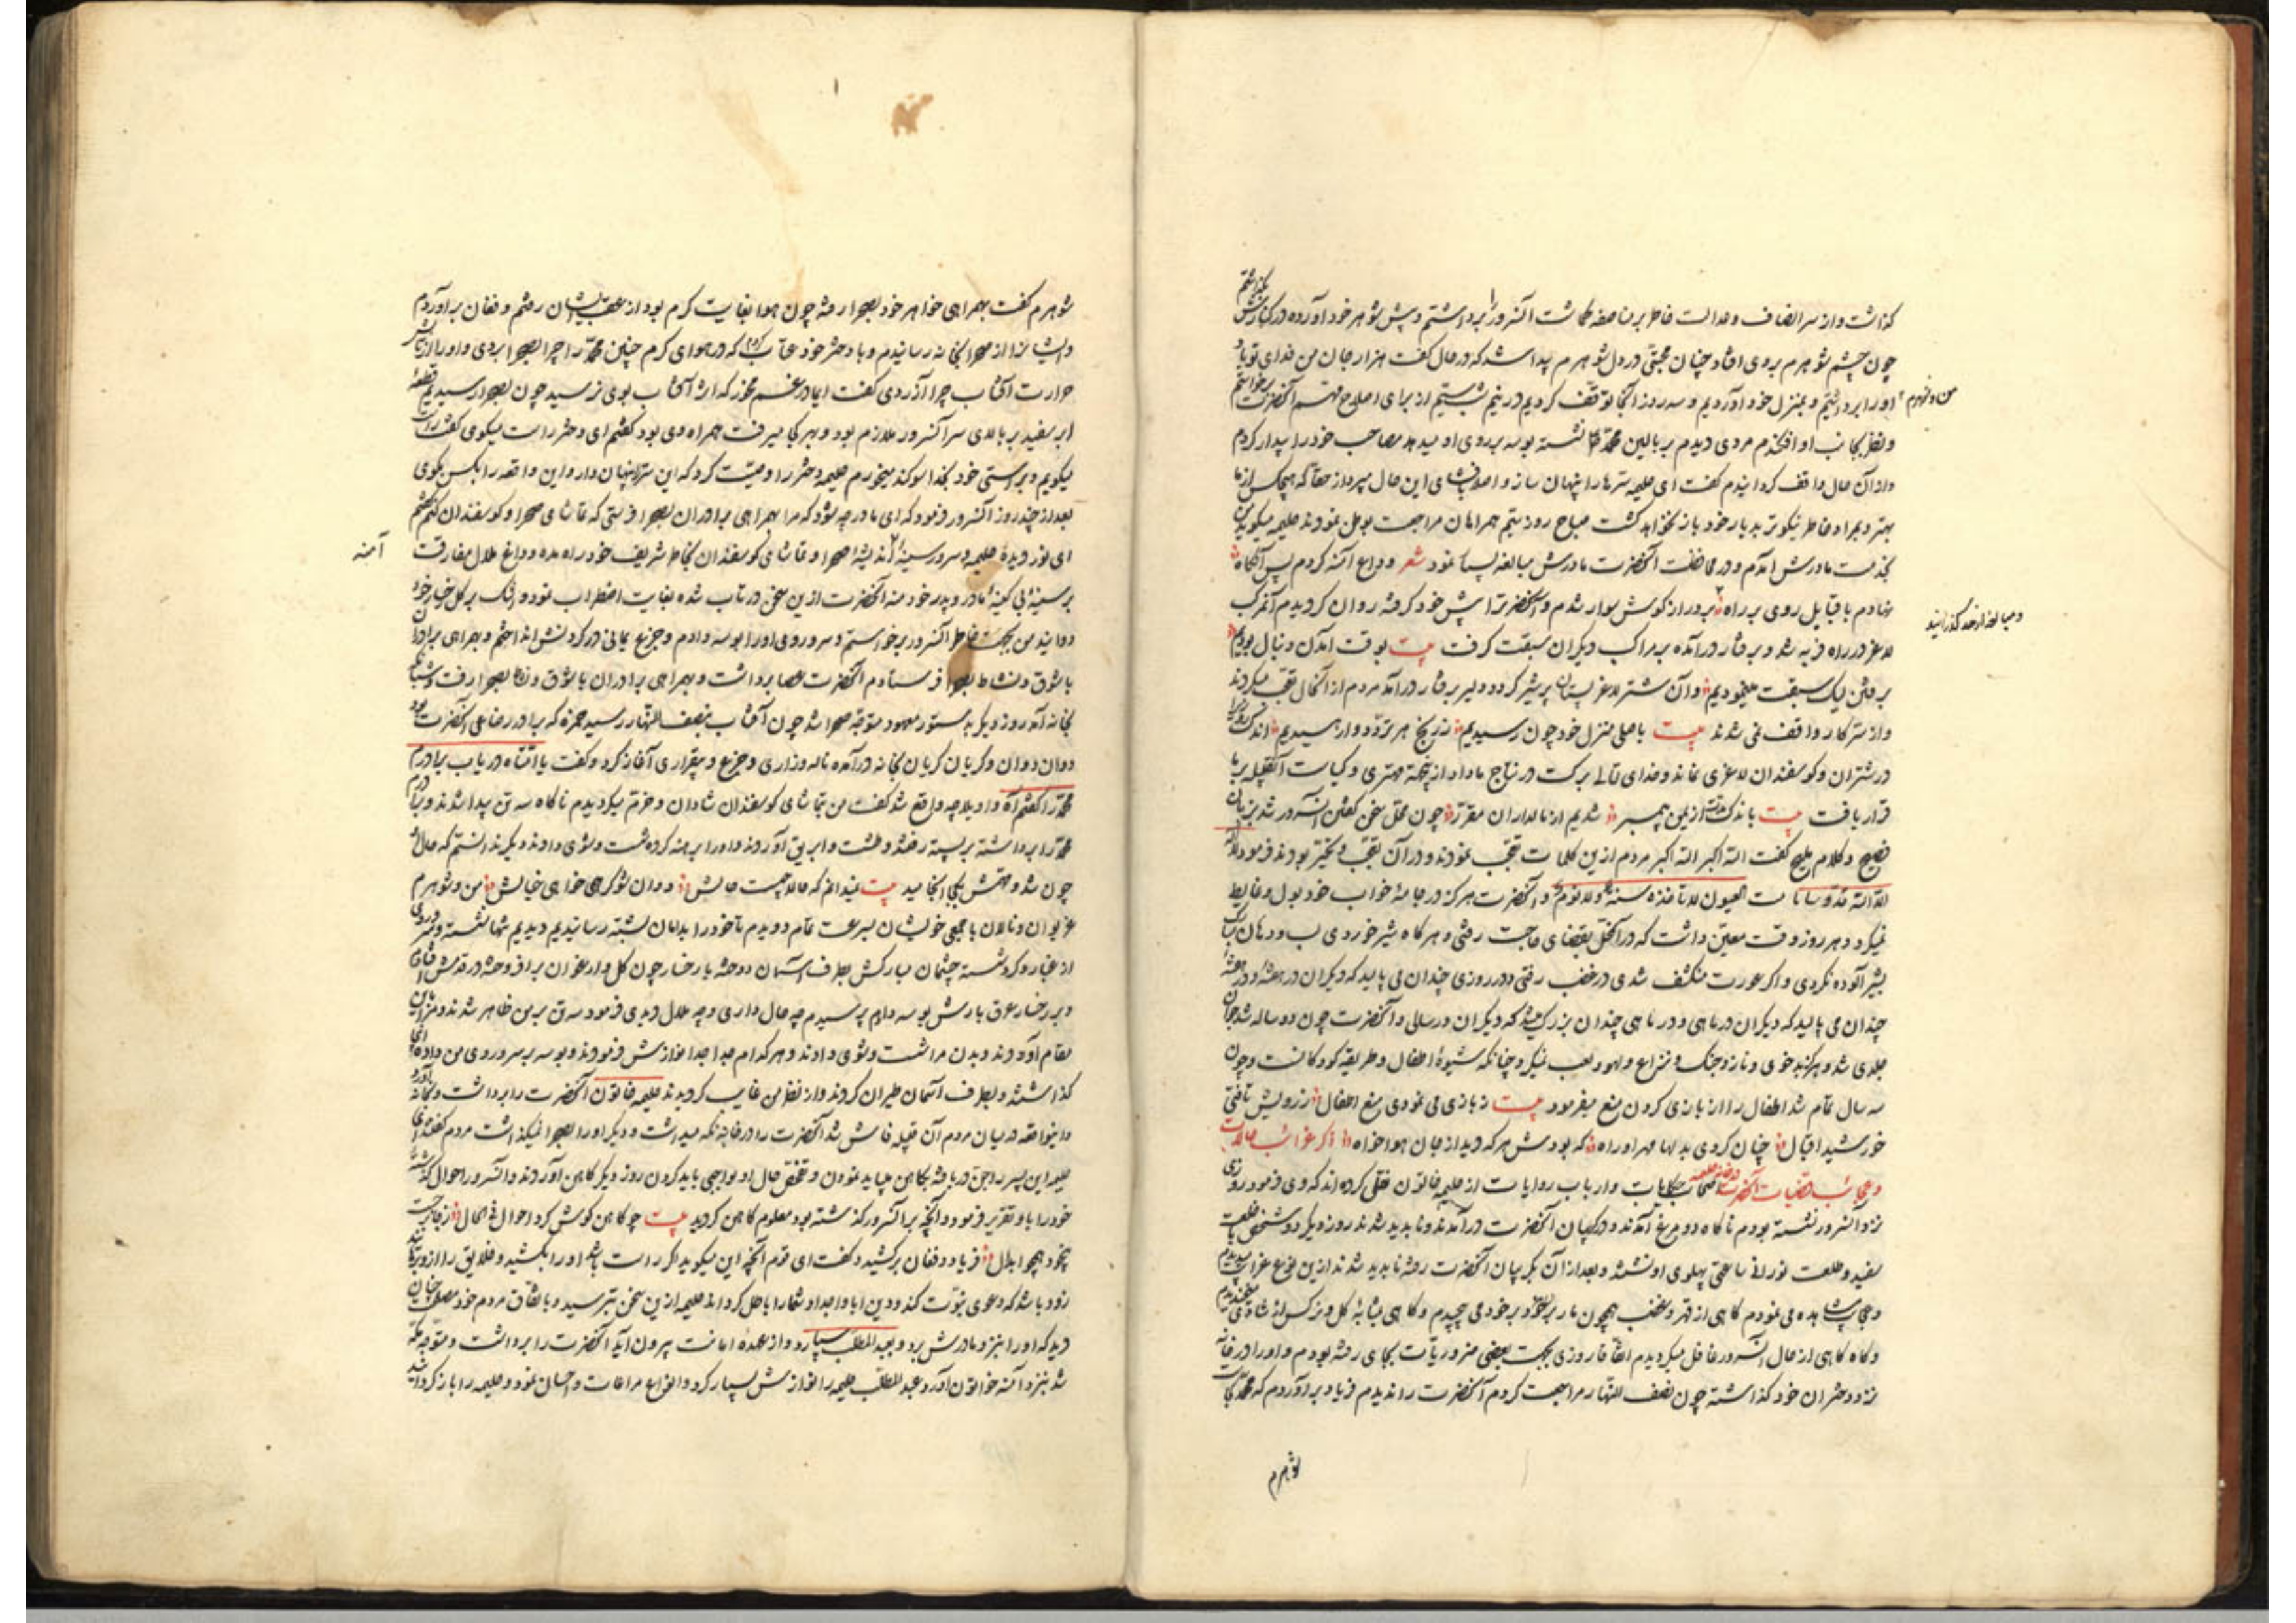 گذاشت و از سر انصاف و عدالت خاطر بر مناصفه گماشت آنسرور را برداشتم و پیش شوهر خود آورده در کنارش بگذاشتم
چون چشم شوهرم بروی افتاد چنان محبتی در دل شوهرم پیدا شد که در حال گفت هزار جان من فدای تو باد
من و شوهرم
او را برداشتیم و بمنزل خود آوردیم و سه روز آنجا توقف کردیم در نیم شب از برای اصلاح مهم آنحضرت برخواستم
و نظر بجانب او افکندم مردی دیدم بر بالین محمد نشسته بوسه بر روی او میدهد مصاحب خود را بیدار کردم
و از آن حال واقف گردانیدم گفت ای حلیمه سر ما را پنهان ساز و اصلا بافشای این حال مپرداز حقا که هیچکس از ما
بهتر و بمراد خاطر نیکوتر بدیار خود باز نخواهد گشت صباح روز سیم همراهان مراجعت بوطن نمودند حلیمه میگوید من
بخدمت مادرش آمدم و در محافظت آنحضرت مادرش مبالغه بسیار نمود شعر وداع آمنه کردم پس آنگاه
و مبالغه از حد گذرانید
نهادم با قبایل روی بر راه بر درازگوش سوار شدم و آنحضرت را پیش خود گرفته روان گردیدم آن مرکب
لاغر در راه فربه شد و برفتار درآمده بر مراکب دیگران سبقت گرفت بیت بوقت آمدن دنبال بودیم
برفتن لیک سبقت مینمودیم و آن شتر لاغر پستان پر شیر کرد و دلیر برفتار درآمد مردم از آنحال تعجب میکردند
و از سر کار واقف نمی شدند بیت باصلی منزل خود چون رسیدیم ز رنج هر تردد وارهیدیم اندک روز را
در شتران و گوسفندان لاغری نماند و خدای تعالی برکت در نتاج ما داد از یمن مهتری و کیاست آنقبیله بر ما
قرار یافت بیت باندک مدت از یمن پیمبر شدیم از مالداران مقرر چون محل سخن گفتن آنسرور شد بزبان
فصیح و کلام ملیح گفت الله اکبر الله اکبر مردم از این کلمات تعجب نمودند و در آن تعجب و تحیر بودند فرمود لا اله
الا الله قدوسا نامت العیون لا تاخذه سنة ولا نوم و آنحضرت هرگز در جامهٔ خواب خود بول و غایط
نمیکرد و هر روز وقت معین داشت که در آنمحل بقضای حاجت رفتی و هرگاه شیر خوردی لب و دهان مبارک
بشیر آلوده نکردی و اگر عورت منکشف شدی در غضب رفتی و در روزی چندان می بالید که دیگران در هفته و در هفته
چندان می بالید که دیگران در ماهی و در ماهی چندان بزرگ میشد که دیگران در سالی و آنحضرت چون دو ساله شد جوان
جلدی شد و هرگز بدخوی و ناز و جنگ و نزاع و لهو و لعب نمیکرد چنانکه شیوهٔ اطفال و طریقه کودکانست و چون
سه سال تمام شد اطفال را از بازی کردن منع میفرمود بیت ز بازی می نمودی منع اطفال ز رویش تافتی
خورشید اقبال چنان کردی بدلها مهر او راه که بودش هر که دید از جان هواخواه ذکر غرائب حالات
و عجائب قضیات آنحضرت در خانه حلیمه اصحاب حکایات و ارباب روایات از حلیمه خاتون نقل کرده اند که وی فرمود روزی
نزد آنسرور نشسته بودم ناگاه دو مرغ آمدند و در گریبان آنحضرت درآمدند و ناپدید شدند روز دیگر دو شخص با خلعت
سفید و طلعت نورانی ساعتی پهلوی او نشستند و بعد از آن بگریبان آنحضرت رفته ناپدید شدند از این نوع غرایب میدیدم
و عجایب مشاهده می نمودم گاهی از قهر و غضب همچون مار بر خود می پیچیدم و گاهی بمثابهٔ گل و نرگس از شادی میخندیدم
و گاه گاهی از حال آنسرور غافل میگردیدم اتفاقا روزی بجهت بعضی ضروریات بجای رفته بودم و او را در خانه
نزد دختران خود گذاشته چون نصف النهار مراجعت کردم آنحضرت را ندیدم فریاد برآوردم که محمد کجاست
شوهرم
شوهرم گفت بهمراهی خواهر خود بصحرا رفته چون هوا بغایت گرم بود از عقب ایشان رفتم و فغان برآوردم
و ایشانرا از صحرا بخانه رسانیدم و با دختر خود عتاب کردم که در هوای گرم چنین محمد را چرا بصحرا بردی و او را از تابش
حرارت آفتاب چرا آزردی گفت ایمادر غم مخور که اثر آفتاب بوی نرسید چون بصحرا رسیدیم قطعهٔ
ابر سفید بر بالای سر آنسرور ملازم بود و بهر کجا میرفت همراه وی بود گفتم ای دختر راست میگوی گفت راست
میگویم و براستی خود بخدا سوگند میخورم حلیمه دختر را وصیت کرد که این سر را پنهان دار و این واقعه را بکس مگوی
بعد از چند روز آنسرور فرمود که ای مادر چه شود که مرا بهمراهی برادران بصحرا فرستی که تماشای صحرا و گوسفندان کنم گفتم
آمنه
ای نور دیدهٔ حلیمه و سرور سینهٔ اندیشهٔ صحرا و تماشای گوسفندان بخاطر شریف خود راه مده و داغ ملال مفارقت
بر سینهٔ بی کینهٔ مادر و پدر خود منه آنحضرت از این سخن در تاب شده بغایت اضطراب نمود و اشک بر گل رخسار خود
دوانید من بجهت خاطر آنسرور برخواستم و سر و روی او را بوسه دادم و جزع یمانی در گردنش انداختم و بهمراهی برادران
با شوق و نشاط بصحرا فرستادم آنحضرت عصا برداشت و بهمراهی برادران با شوق و نشاط بصحرا رفت و شبانگاه
بخانه آمد روز دیگر بدستور معهود متوجه صحرا شد چون آفتاب بنصف النهار رسید حمزه که برادر رضاعی آنحضرت بود
دوان دوان و گریان گریان بخانه درآمده ناله و زاری و جزع و بیقراری آغاز کرد و گفت یا اماه دریاب برادرم
محمد را گفتم آه و اویلا چه واقع شد گفت من تماشای گوسفندان شادان و خرم میگردیدیم ناگاه سه تن پیدا شدند و برادرم
محمد را برداشته بر پشته رفتند و طشت و ابریق آوردند و او را برهنه کرده شست و شوی دادند و دیگر ندانستم که حال
چون شد و مهمش بکجا انجامید بیت نمیدانم که حالا چیست حالش دوان شو گر همی خواهی خیالش من و شوهرم
غریوان و نالان با جمعی خویشان بسرعت تمام دویدیم تا خود را بدامان پشته رسانیدیم دیدیم تنها نشسته و سر و روی
از غبار و گرد شسته چشمان مبارکش بطرف آسمان دوخته با رخسار چون گل و ارغوان برافروخته در قدمش افتادم
و بر رخسار عرق بارش بوسه دادم پرسیدم چه حال داری و چه ملال دیدی فرمود سه تن بر من ظاهر شدند و مرا باین
مقام آوردند و بدن مرا شست و شوی دادند و هر کدام جدا جدا نوازش فرمودند و بوسه بر سر و روی من داده
گذاشتند و بطرف آسمان طیران کردند و از نظر من غایب گردیدند حلیمه خاتون آنحضرت را برداشت و بخانه آورد
و اینواقعه در میان مردم آن قبیله فاش شد آنحضرت را در خانه نگه میداشت و دیگر او را بصحرا نمیگذاشت مردم گفتند ای
حلیمه این پسر را جن دریافته بکاهن میباید نمودن و تفحص حال او بواجبی باید کردن روز دیگر کاهن آوردند و آنسرور احوال گذشتهٔ
خود را باو تقریر فرمود و آنچه بر آنسرور گذشته بود معلوم کاهن گردید بیت چو کاهن گوش کرد احوال فی الحال ز جا برجست
بیخود همچو ابدال فریاد و فغان برکشید و گفت ای قوم آنچه این میگوید اگر راست باشد او را بکشید و خلایق را از
زود باشد که دعوی نبوت کند و دین ابا و اجداد شما را باطل گرداند حلیمه از این سخن بترسید و باتفاق مردم خود مصلحت چنان
دید که او را بنزد مادرش برد و بعبدالمطلب سپارد و از عهدهٔ امانت بیرون آید آنحضرت را برداشت و متوجه مکه
شد بنزد آمنه خواتون آورد و عبدالمطلب حلیمه را نوازش بسیار کرد و انواع مراعات و احسان نمود و حلیمه را باز گردانید